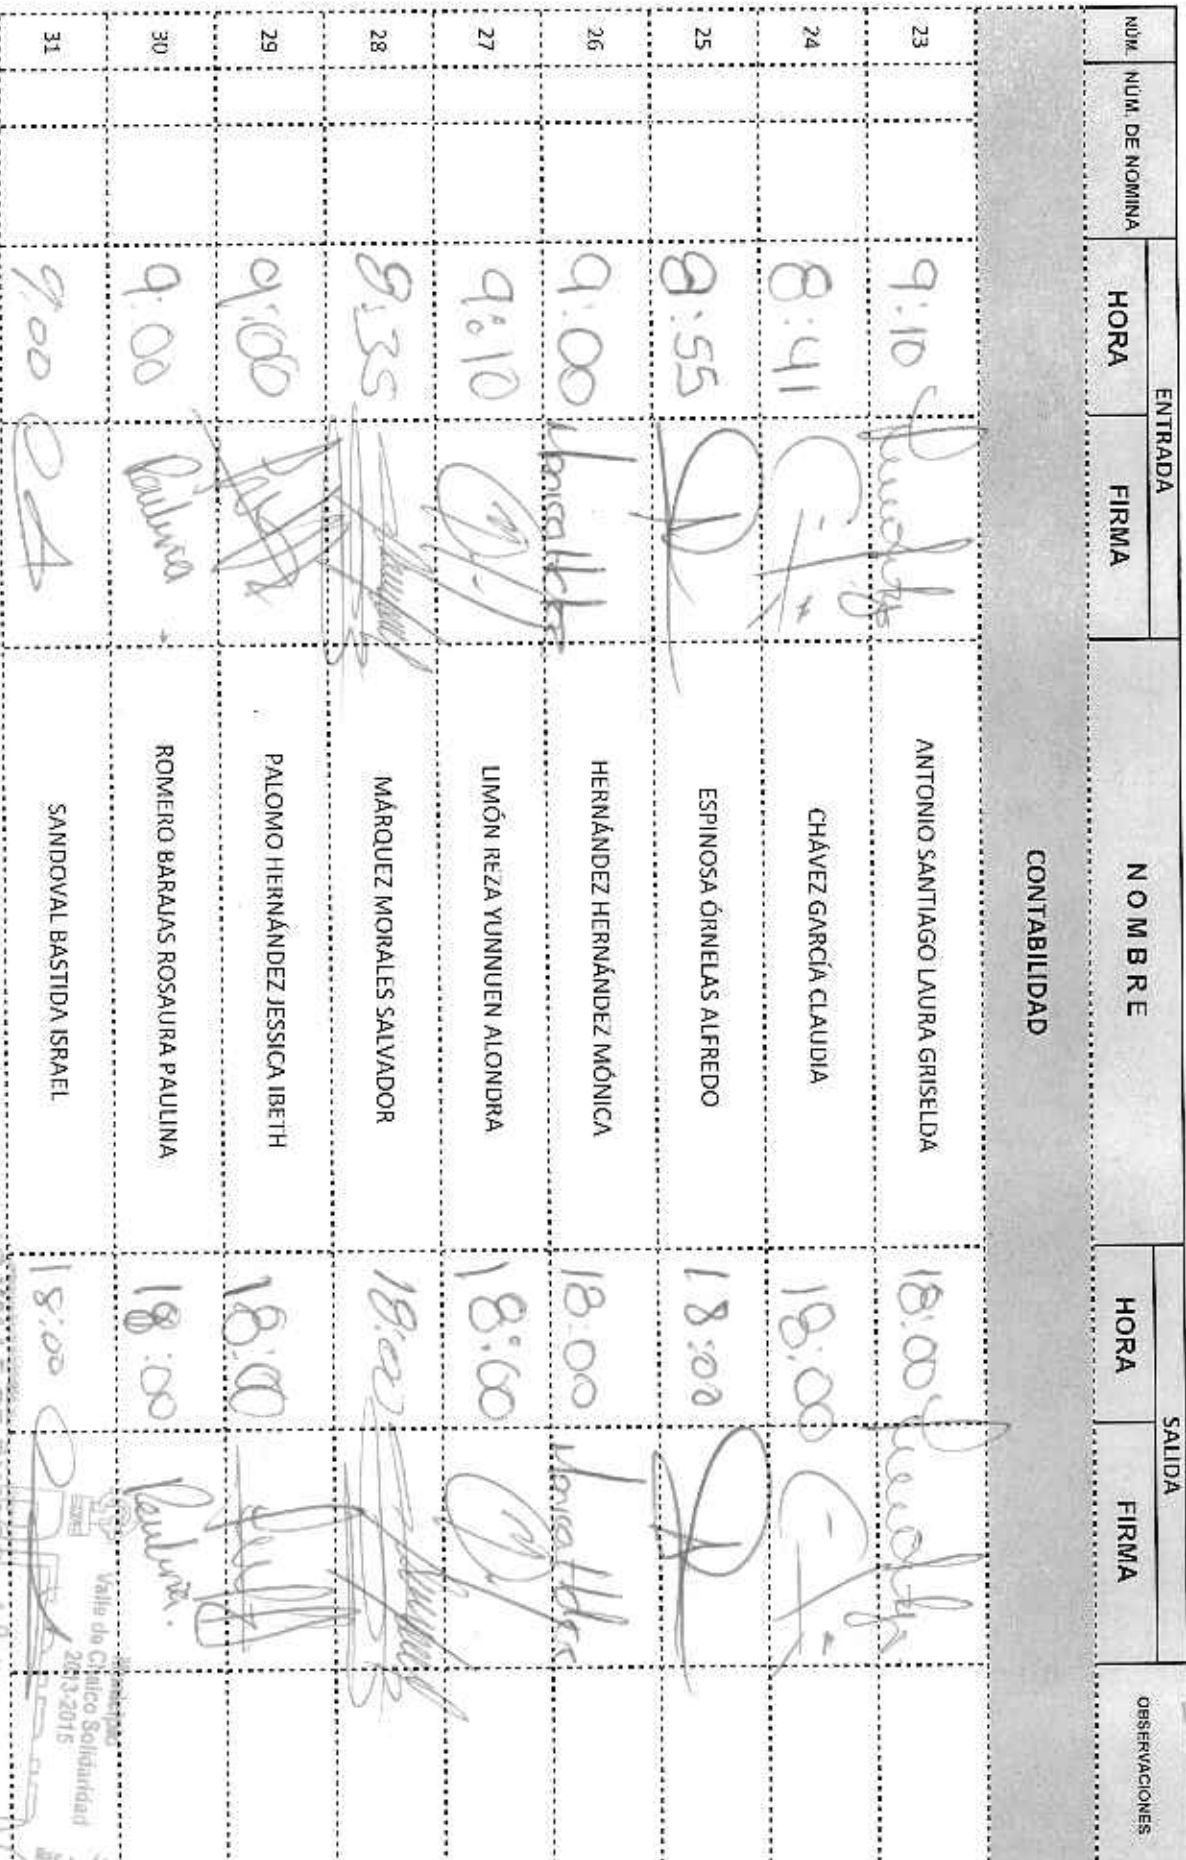 ENTRADA SALIDA
NÚM. NÚM. DE NOMINA HORA FIRMA NOMBRE HORA FIRMA OBSERVACIONES
CONTABILIDAD
23 9:10 ANTONIO SANTIAGO LAURA GRISELDA 18:00
24 8:41 CHÁVEZ GARCÍA CLAUDIA 18:00
25 8:55 ESPINOSA ÓRNELAS ALFREDO 18:00
26 9:00 HERNÁNDEZ HERNÁNDEZ MÓNICA 18:00
27 9:10 LIMÓN REZA YUNNUEN ALONDRA 18:00
28 8:35 MÁRQUEZ MORALES SALVADOR 18:00
29 9:00 PALOMO HERNÁNDEZ JESSICA IBETH 18:00
30 9:00 Paulina ROMERO BARAJAS ROSAURA PAULINA 18:00 Paulina.
31 9:00 SANDOVAL BASTIDA ISRAEL 18:00
Municipio
Valle de Chalco Solidaridad
2013-2015